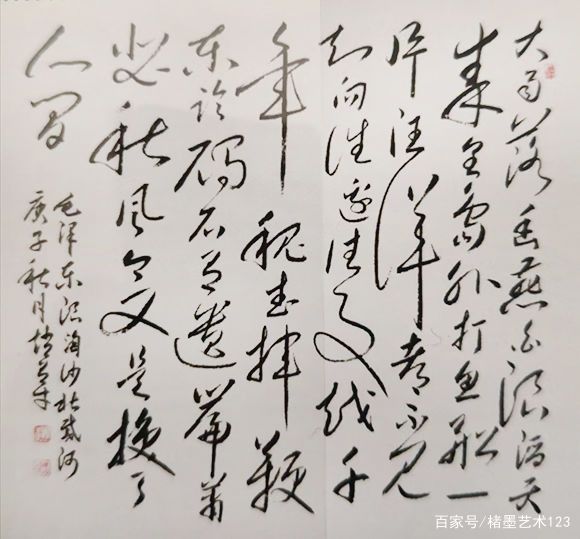 大雨落幽燕白浪滔天
秦皇岛外打鱼船一
片汪洋都不见
知向谁边往事越千
年魏武挥鞭
东临碣石有遗篇萧
瑟秋风今又是换了
人间
毛泽东浪淘沙北戴河
庚子秋月
百家号/楮墨艺术123